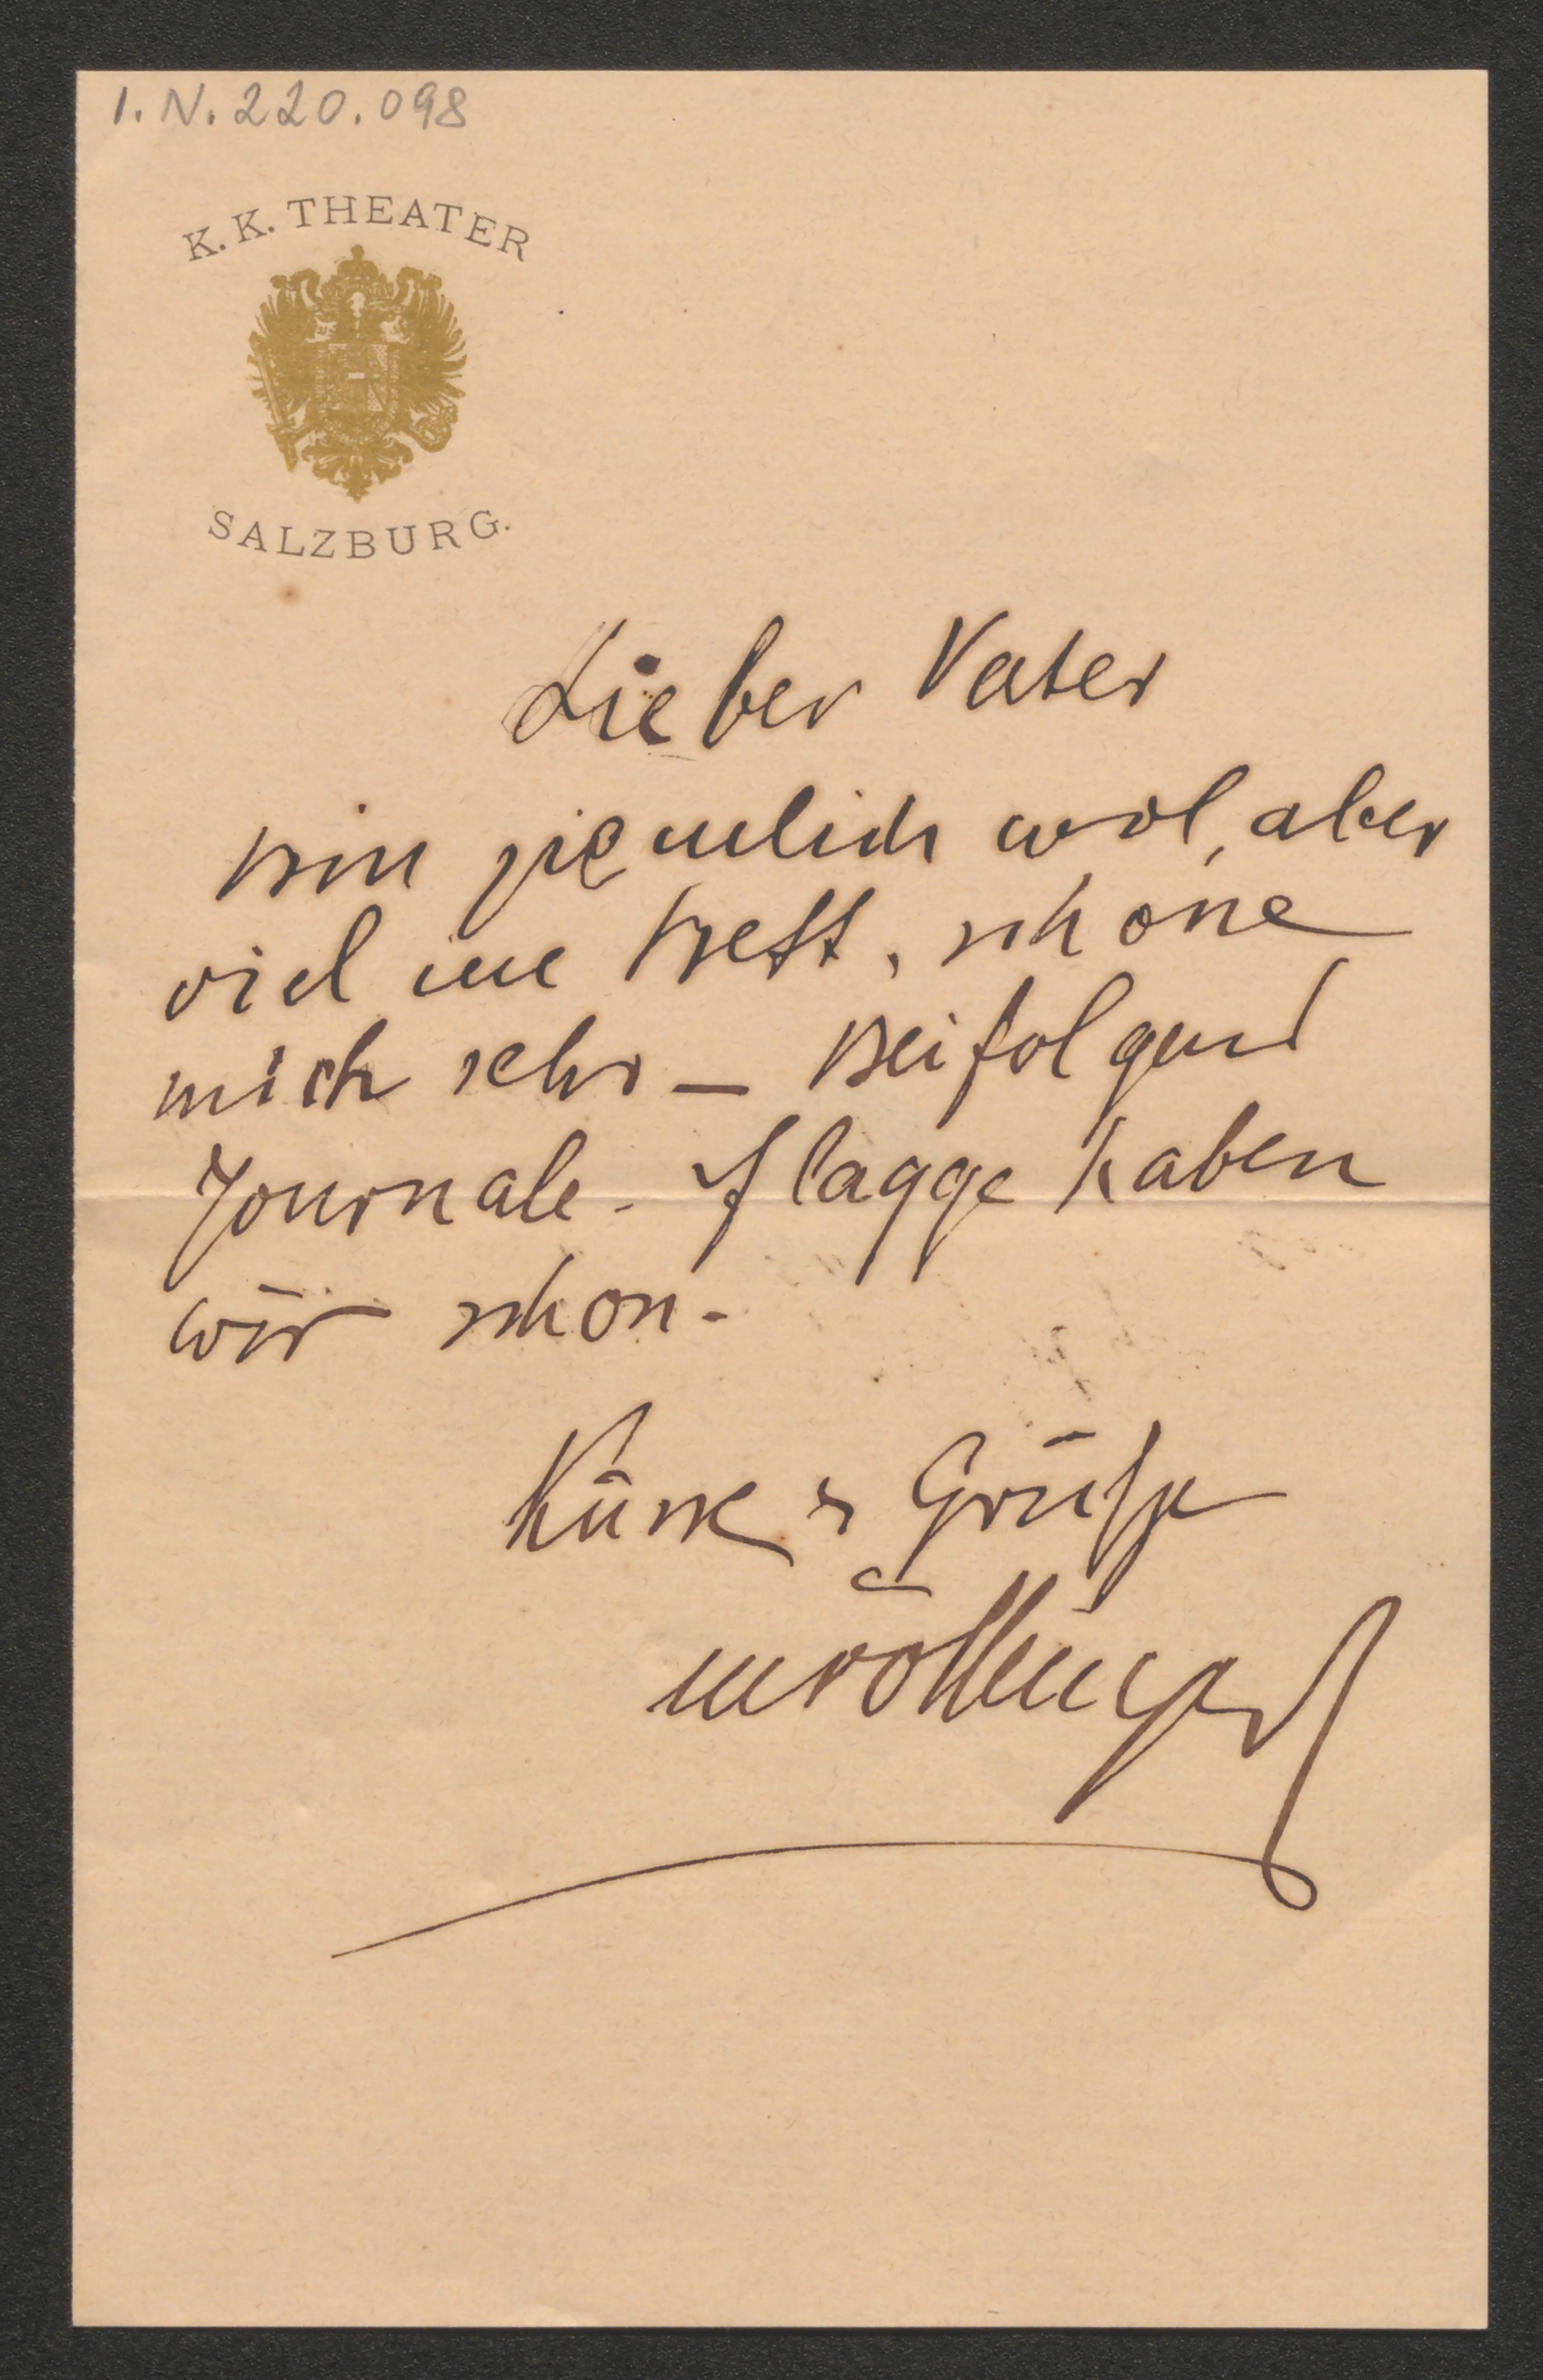 I.N. 220.098
K. K. THEATER
SALZBURG.
Lieber Vater
bin ziemlich wol, aber
viel im Bett, schone
mich sehr – Beifolgend
Journale. Flagge haben
wir schon.
Küsse & Grüße